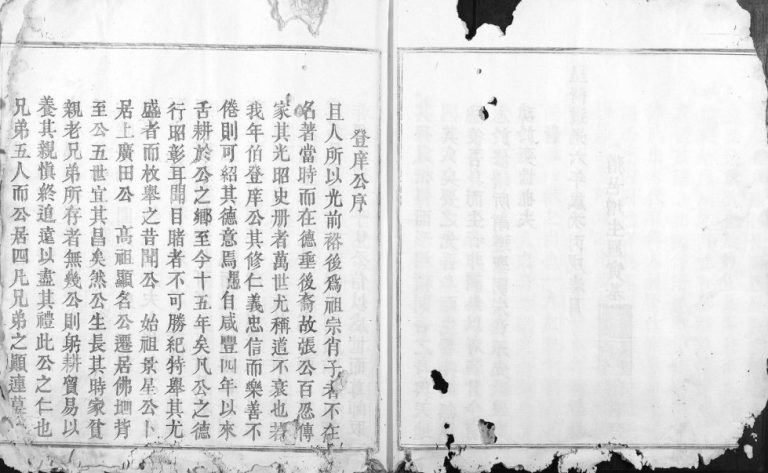 登庠公序
且人所以光前裕後爲祖宗肖子者不在
名著當時而在德垂後裔故張公百忍傳
家其光昭史册者萬世尤稱道不衰也若
我年伯登庠公其修仁義忠信而樂善不
倦則可紹其德意焉愚自咸豐四年以來
舌耕於公之鄉至今十五年矣凡公之德
行昭彰耳聞目睹者不可勝紀特舉其尤
盛者而枚舉之昔聞公 始祖景星公卜
居上廣田公 高祖顯名公遷居佛𡌶背
至公五世宜其昌矣然公生長其時家貧
親老兄弟所存者無幾公則躬耕貿易以
養其親慎終追遠以盡其禮此公之仁也
兄弟五人而公居四凡兄弟之顛連